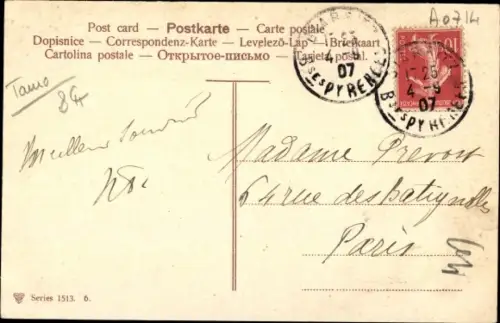 A0714
Post card — Postkarte — Carte postale
Dopisnice — Correspondenz-Karte — Levelező-Lap — Brietkaart
Cartolina postale — Открытое-письмо — Tarjeta postal
4-9
07
Bses PYRENEES
25
4-9
07
Bses PYRENEES
10
84
Meilleur Souvenir
Madame Prevost
64 rue des Batignolles
Paris
Series 1513. 6.